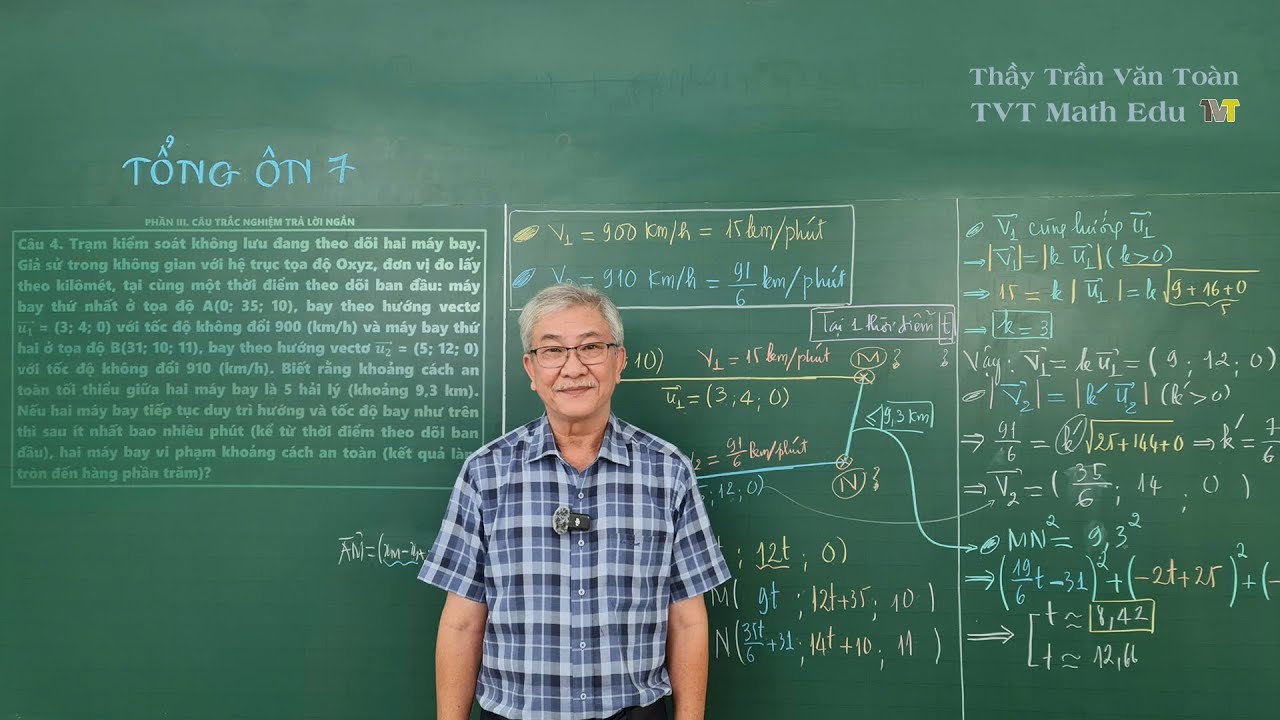 Thầy Trần Văn Toàn
TVT Math Edu TVT
TỔNG ÔN 7
PHẦN III. CÂU TRẮC NGHIỆM TRẢ LỜI NGẮN
Câu 4. Trạm kiểm soát không lưu đang theo dõi hai máy bay.
Giả sử trong không gian với hệ trục tọa độ Oxyz, đơn vị đo lấy
theo kilômét, tại cùng một thời điểm theo dõi ban đầu: máy
bay thứ nhất ở tọa độ A(0; 35; 10), bay theo hướng vectơ
u₁ = (3; 4; 0) với tốc độ không đổi 900 (km/h) và máy bay thứ
hai ở tọa độ B(31; 10; 11), bay theo hướng vectơ u₂ = (5; 12; 0)
với tốc độ không đổi 910 (km/h). Biết rằng khoảng cách an
toàn tối thiểu giữa hai máy bay là 5 hải lý (khoảng 9,3 km).
Nếu hai máy bay tiếp tục duy trì hướng và tốc độ bay như trên
thì sau ít nhất bao nhiêu phút (kể từ thời điểm theo dõi ban
đầu), hai máy bay vi phạm khoảng cách an toàn (kết quả làm
tròn đến hàng phần trăm)?
V₁ = 900 km/h = 15 km/phút
= 910 km/h = 91/6 km/phút
Tại 1 thời điểm t
10) V₁ = 15 km/phút M ?
u₁ = (3; 4; 0)
< 9,3 km
= 91/6 km/phút
N ?
12; 0)
AM = (xM − xA
; 12t ; 0)
M( 9t ; 12t+35; 10 )
N(35t/6 + 31; 14t + 10; 11 )
V₁ cùng hướng u₁
⇒ |V₁| = |k u₁| (k > 0)
⇒ 15 = k |u₁| = k√(9 + 16 + 0)
5
⇒ k = 3
Vậy: V₁ = k u₁ = ( 9 ; 12 ; 0)
|V₂| = |k′ u₂| (k′ > 0)
⇒ 91/6 = k′√(25 + 144 + 0) ⇒ k′ = 7/6
⇒ V₂ = ( 35/6 ; 14 ; 0 )
MN² = 9,3²
⇒ (19/6 t − 31)² + (−2t + 25)² + (−
⇒ [ t ≈ 8,42
t ≈ 12,66